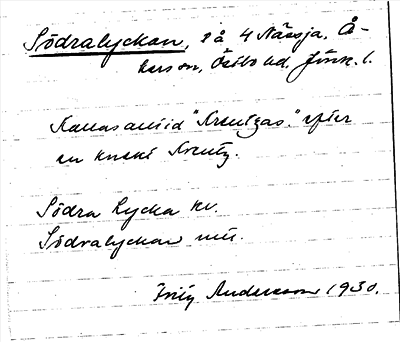 Södralyckan, på 4 Nässja, Å-
kers sn, Östbo hd, Jönk. l.
Kallas alltid "Kreutzas" efter
en knekt Kreutz.
Södra Lycka kv.
Södralyckan mtl.
Fritz Andersson 1930.